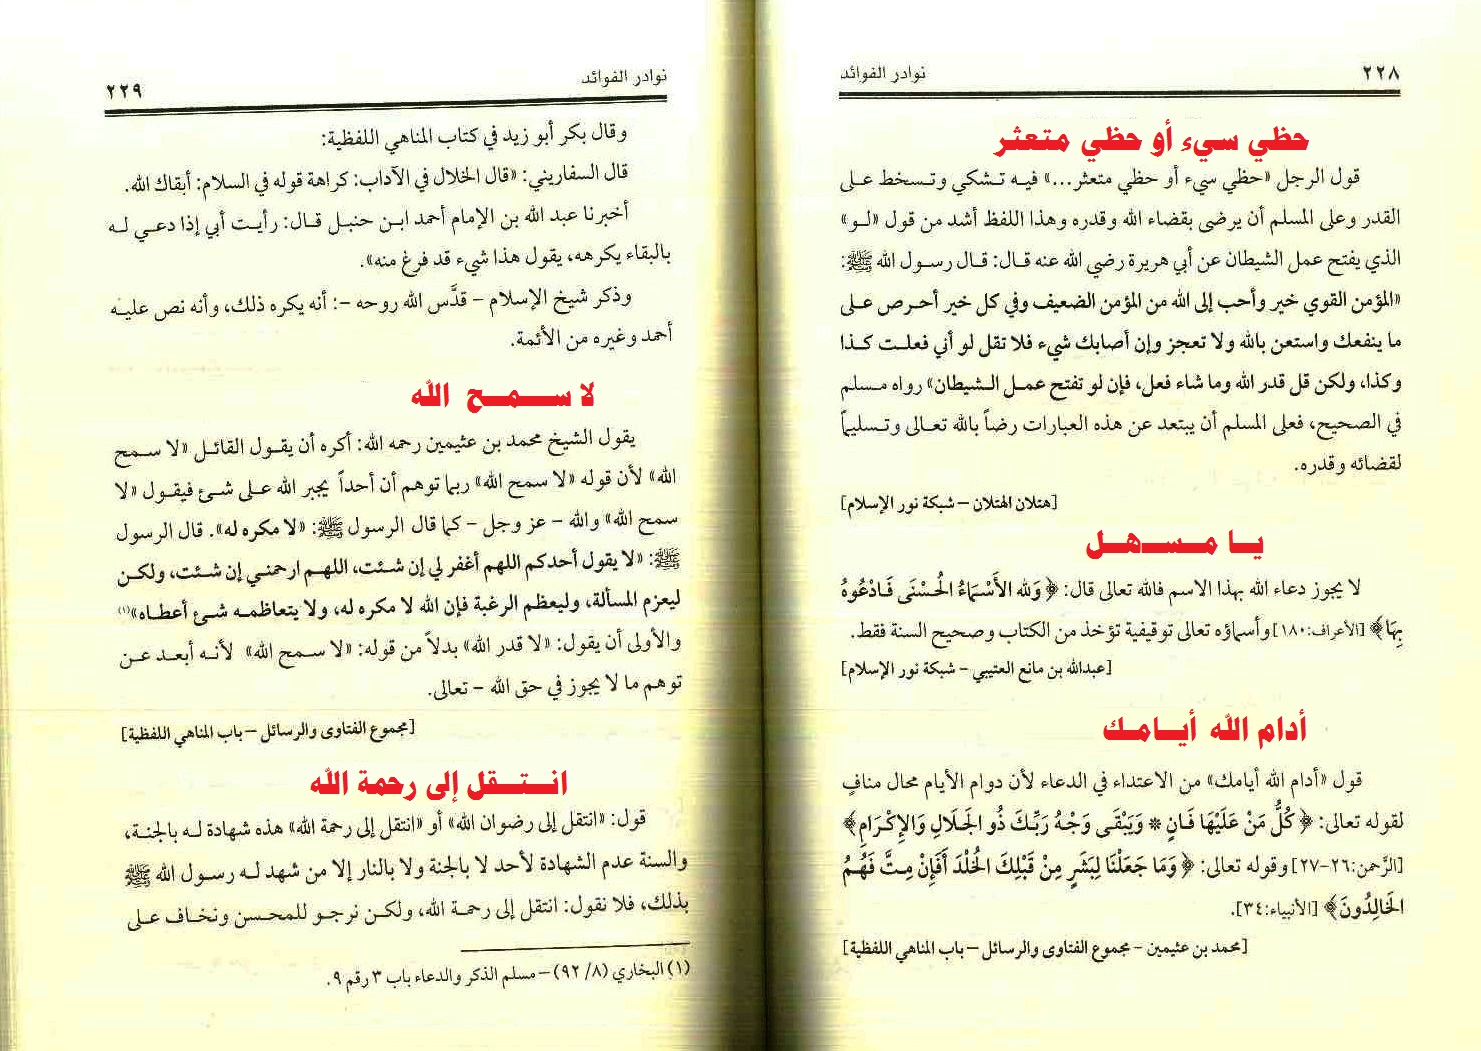 ٢٢٨
نوادر الفوائد
حظي سيء أو حظي متعثر
قول الرجل «حظي سيء أو حظي متعثر...» فيه تشكي وتسخط على
القدر وعلى المسلم أن يرضى بقضاء الله وقدره وهذا اللفظ أشد من قول «لو»
الذي يفتح عمل الشيطان عن أبي هريرة رضي الله عنه قال: قال رسول الله ﷺ:
«المؤمن القوي خير وأحب إلى الله من المؤمن الضعيف وفي كل خير أحرص على
ما ينفعك واستعن بالله ولا تعجز وإن أصابك شيء فلا تقل لو أني فعلت كذا
وكذا، ولكن قل قدر الله وما شاء فعل، فإن لو تفتح عمل الشيطان» رواه مسلم
في الصحيح، فعلى المسلم أن يبتعد عن هذه العبارات رضاً بالله تعالى وتسليماً
لقضائه وقدره.
[هتلان الهتلان – شبكة نور الإسلام]
يا مسهل
لا يجوز دعاء الله بهذا الاسم فالله تعالى قال: ﴿وَلله الأَسْمَاءُ الْحُسْنَى فَادْعُوهُ
بِهَا﴾ [الأعراف:١٨٠] وأسماؤه تعالى توقيفية تؤخذ من الكتاب وصحيح السنة فقط.
[عبدالله بن مانع العتيبي – شبكة نور الإسلام]
أدام الله أيامك
قول «أدام الله أيامك» من الاعتداء في الدعاء لأن دوام الأيام محال منافٍ
لقوله تعالى: ﴿كُلُّ مَنْ عَلَيْهَا فَانٍ * وَيَبْقَى وَجْهُ رَبِّكَ ذُو الجَلَالِ وَالإِكْرَامِ﴾
[الرَّحمن:٢٦-٢٧] وقوله تعالى: ﴿وَمَا جَعَلْنَا لِبَشَرٍ مِنْ قَبْلِكَ الخُلْدَ أَفَإِن مِتَّ فَهُمُ
الخَالِدُونَ﴾ [الأنبياء:٣٤].
[محمد بن عثيمين – مجموع الفتاوى والرسائل – باب المناهي اللفظية]
نوادر الفوائد
٢٢٩
وقال بكر أبو زيد في كتاب المناهي اللفظية:
قال السفاريني: «قال الخلال في الآداب: كراهة قوله في السلام: أبقاك الله.
أخبرنا عبد الله بن الإمام أحمد ابن حنبل قال: رأيت أبي إذا دعي له
بالبقاء يكرهه، يقول هذا شيء قد فرغ منه».
وذكر شيخ الإسلام – قدَّس الله روحه –: أنه يكره ذلك، وأنه نص عليه
أحمد وغيره من الأئمة.
لا سمح الله
يقول الشيخ محمد بن عثيمين رحمه الله: أكره أن يقول القائل «لا سمح
الله» لأن قوله «لا سمح الله» ربما توهم أن أحداً يجبر الله على شئ فيقول «لا
سمح الله» والله – عز وجل – كما قال الرسول ﷺ: «لا مكره له». قال الرسول
ﷺ: «لا يقول أحدكم اللهم أغفر لي إن شئت، اللهم ارحمني إن شئت، ولكن
ليعزم المسألة، وليعظم الرغبة فإن الله لا مكره له، ولا يتعاظمه شئ أعطاه»(١)
والأولى أن يقول: «لا قدر الله» بدلاً من قوله: «لا سمح الله» لأنه أبعد عن
توهم ما لا يجوز في حق الله – تعالى.
[مجموع الفتاوى والرسائل – باب المناهي اللفظية]
انتقل إلى رحمة الله
قول: «انتقل إلى رضوان الله» أو «انتقل إلى رحمة الله» هذه شهادة له بالجنة،
والسنة عدم الشهادة لأحد لا بالجنة ولا بالنار إلا من شهد له رسول الله ﷺ
بذلك، فلا نقول: انتقل إلى رحمة الله، ولكن نرجو للمحسن ونخاف على
(١) البخاري (٨/ ٩٢) – مسلم الذكر والدعاء باب ٣ رقم ٩.